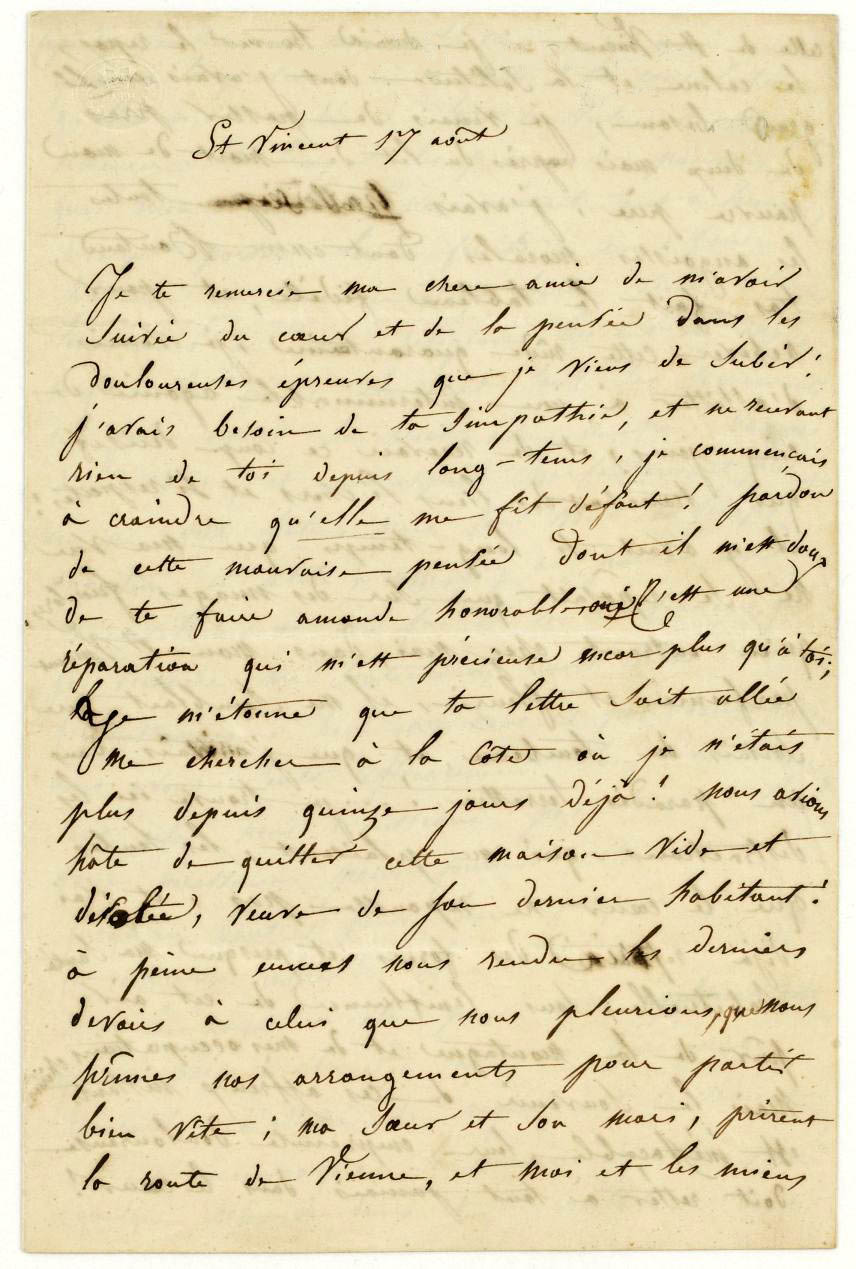 St Vincent 17 août
Je te remercie ma chere amie de m'avoir
suivie du cœur et de la pensée dans les
douloureuses épreuves que je viens de subir!
j'avais besoin de ta simpathie, et ne recevant
rien de toi depuis long-tems, je commencais
à craindre qu'elle me fît défaut! pardon
de cette mauvaise pensée dont il m'est doux
de te faire amande honorable, c'est une
réparation qui m'est précieuse encor plus qu'à toi;
je m'étonne que ta lettre soit allée
me chercher à la Côte où je n'étais
plus depuis quinze jours déjà! nous avions
hâte de quitter cette maison vide et
désolée, veuve de son dernier habitant!
à peine eumes nous rendu les derniers
devoirs à celui que nous pleurions, que nous
prîmes nos arrangements pour partir
bien vite; ma sœur et son mari, prirent
la route de Vienne, et moi et les miens